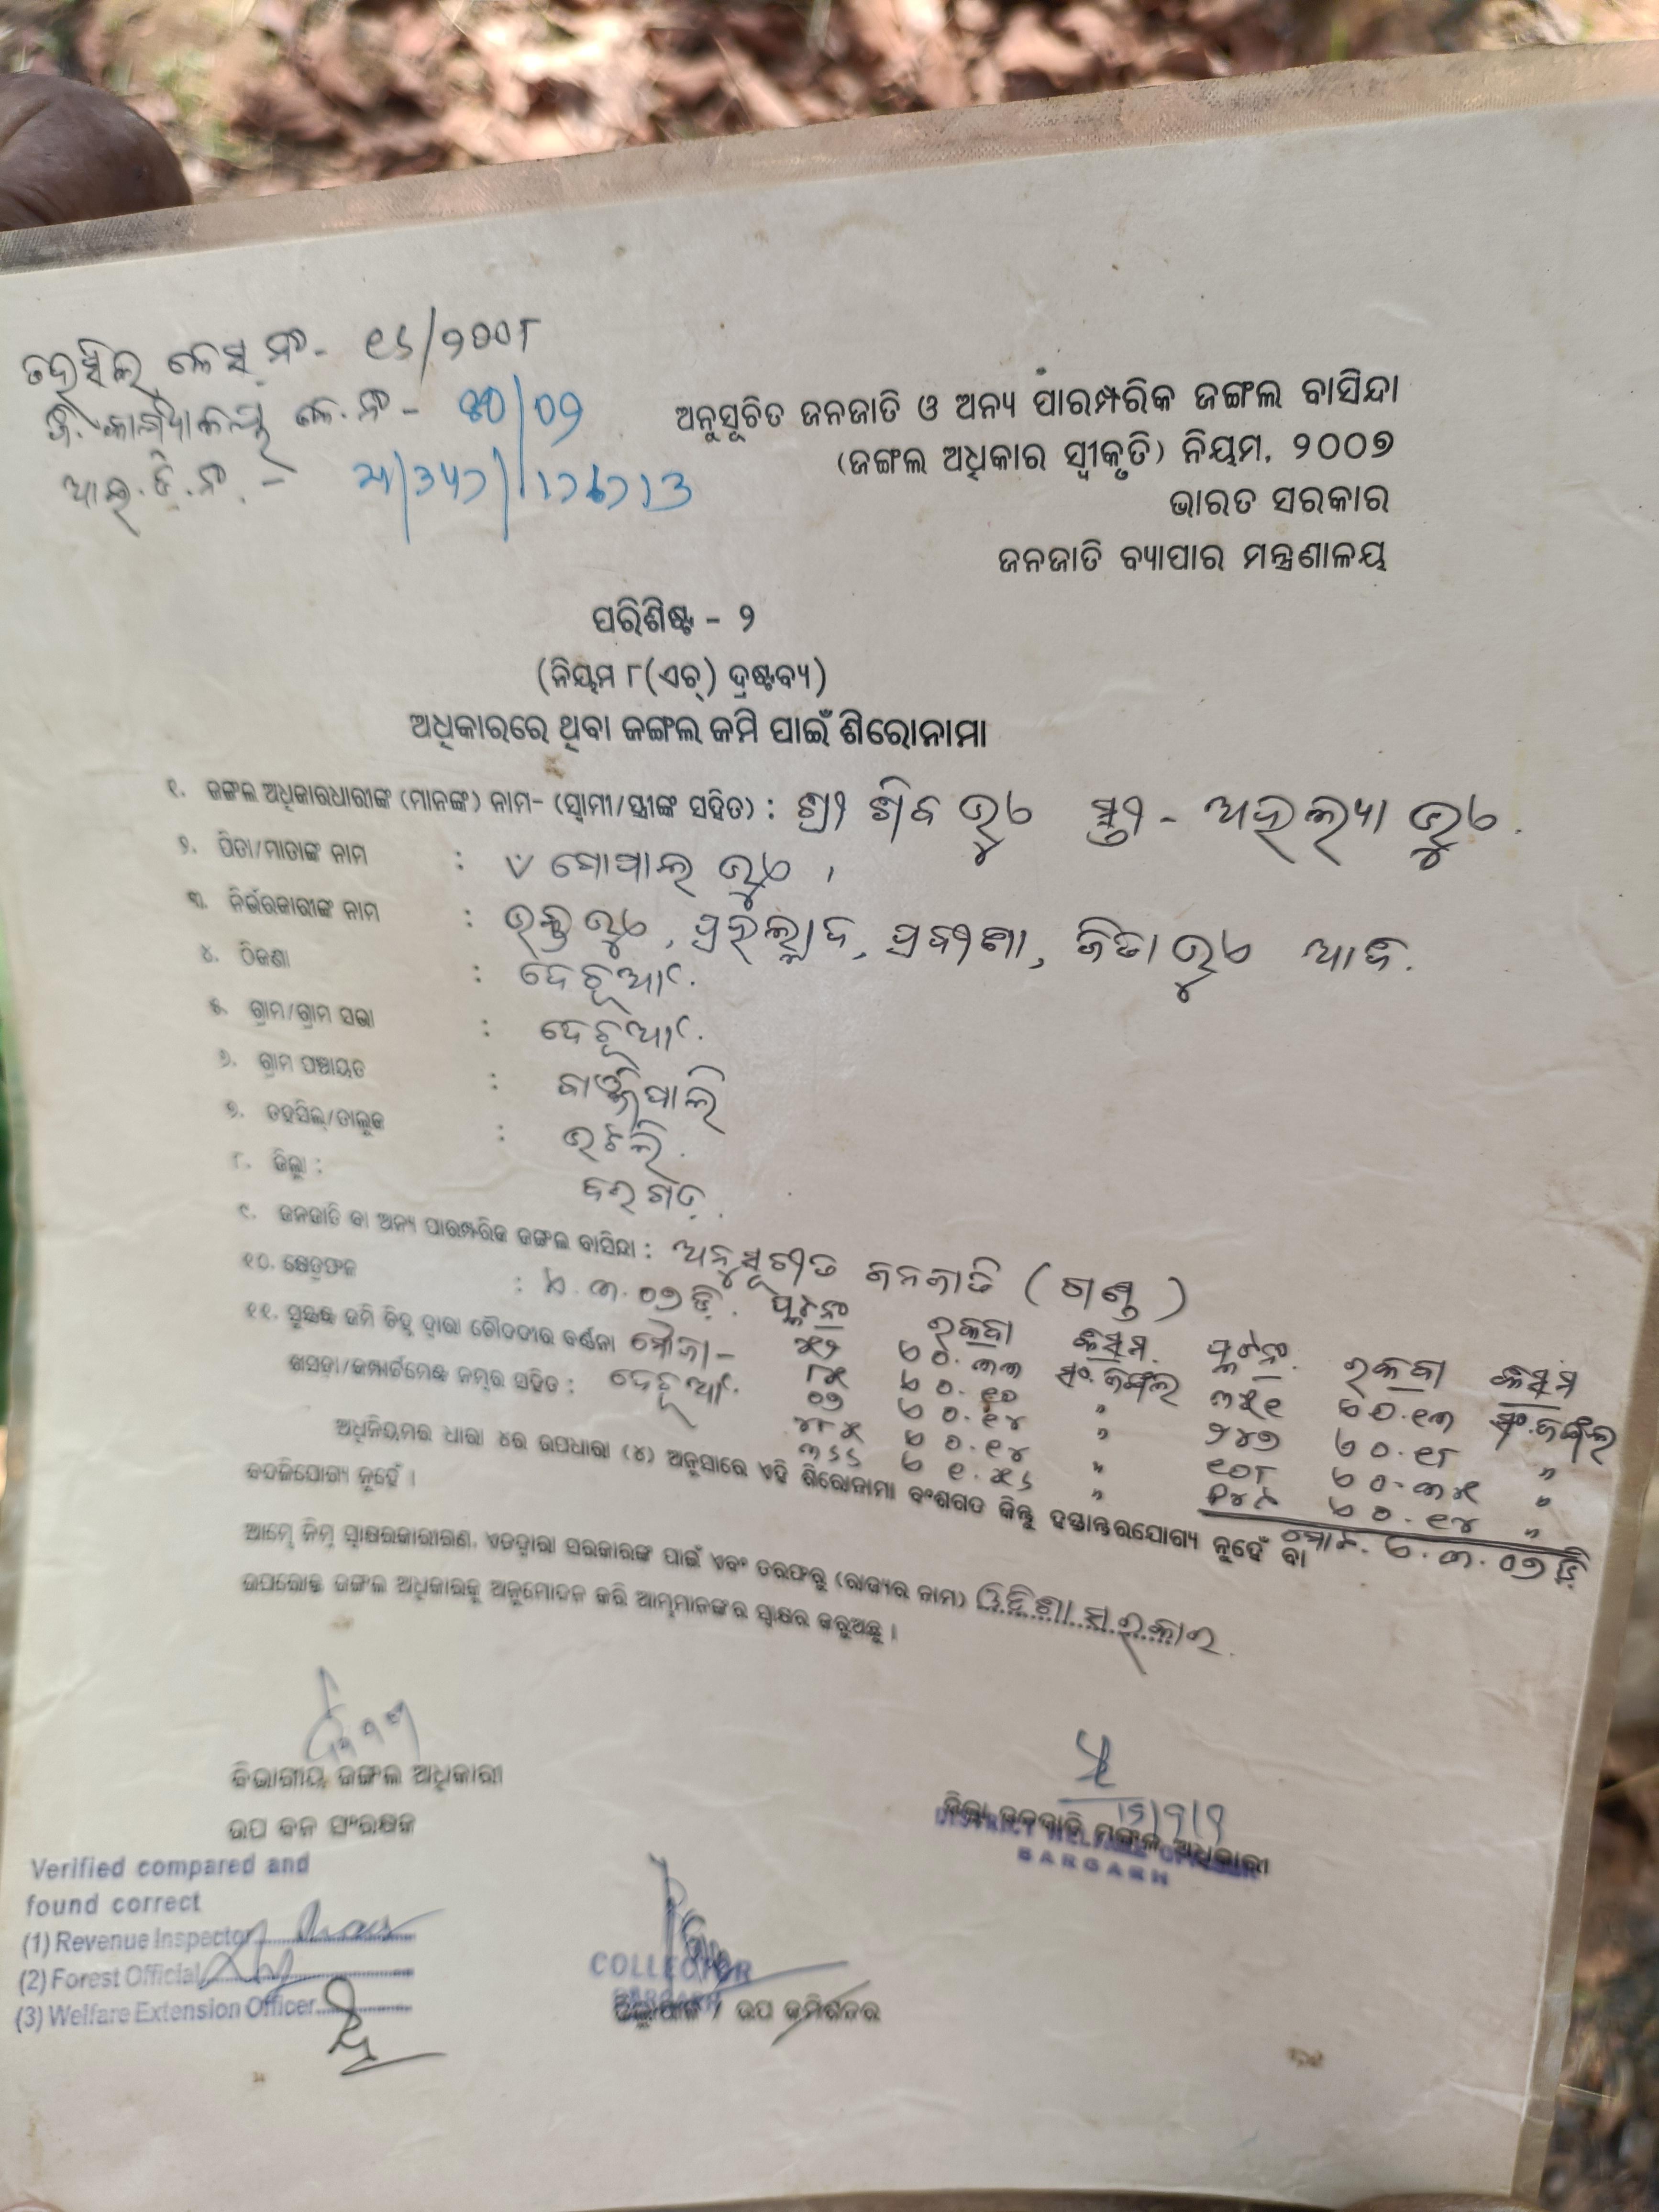 ତହସିଲ କେସ୍ ନଂ - ୧୬/୨୦୦୮
ଜି. କାର୍ଯ୍ୟାଳୟ କେ. ନଂ -
ଆଇ. ଡି. ନଂ. -
ଅନୁସୂଚିତ ଜନଜାତି ଓ ଅନ୍ୟ ପାରମ୍ପରିକ ଜଙ୍ଗଲ ବାସିନ୍ଦା
(ଜଙ୍ଗଲ ଅଧିକାର ସ୍ୱୀକୃତି) ନିୟମ, ୨୦୦୭
ଭାରତ ସରକାର
ଜନଜାତି ବ୍ୟାପାର ମନ୍ତ୍ରଣାଳୟ
ପରିଶିଷ୍ଟ - ୨
(ନିୟମ ୮(ଏଚ୍) ଦ୍ରଷ୍ଟବ୍ୟ)
ଅଧିକାରରେ ଥିବା ଜଙ୍ଗଲ ଜମି ପାଇଁ ଶିରୋନାମା
୧. ଜଙ୍ଗଲ ଅଧିକାରଧାରୀଙ୍କ (ମାନଙ୍କ) ନାମ- (ସ୍ୱାମୀ/ସ୍ତ୍ରୀଙ୍କ ସହିତ) : ଶ୍ରୀ ଶିବ ଭୁଏ ସ୍ତ୍ରୀ - ଅହଲ୍ୟା ଭୁଏ.
୨. ପିତା/ମାତାଙ୍କ ନାମ : ଗୋପାଲ ଭୁଏ
୩. ନିର୍ଭରକାରୀଙ୍କ ନାମ : ଭୁଏ, ପ୍ରହଲ୍ଲାଦ, ଭୁଏ
୪. ଠିକଣା : ଦେହୂଆଁ.
୫. ଗ୍ରାମ/ଗ୍ରାମ ସଭା : ଦେହୂଆଁ.
୬. ଗ୍ରାମ ପଞ୍ଚାୟତ :
୭. ତହସିଲ୍/ତାଲୁକ : ଭଟଲି.
୮. ଜିଲ୍ଲା : ବରଗଡ଼.
୯. ଜନଜାତି ବା ଅନ୍ୟ ପାରମ୍ପରିକ ଜଙ୍ଗଲ ବାସିନ୍ଦା : ଅନୁସୂଚୀତ ଜନଜାତି (ଗଣ୍ଡ)
୧୦. କ୍ଷେତ୍ରଫଳ : ଏ ୩.୦୭ ଡି.
୧୧. ସୁସ୍ପଷ୍ଟ ଜମି ଚିହ୍ନ ଦ୍ୱାରା ଚୌହଦ୍ଦୀର ବର୍ଣ୍ଣନା ମୌଜା - ପ୍ଲଟ ନଂ ରକବା କିସମ. ପ୍ଲଟ ନଂ. ରକବା କିସମ
ଖସଡ଼ା/କମ୍ପାର୍ଟମେଣ୍ଟ ନମ୍ବର ସହିତ : ଦେହୂଆଁ.
ଏ ୦.୩୩ ସଂ. ଜଙ୍ଗଲ ୩୫୧ ଏ ୦.୧୩ ସଂ. ଜଙ୍ଗଲ
ଏ ୦.୧୦ " ୨୪୭ ଏ ୦.୧୮ "
ଏ ୦.୧୪ " ୧୦୮ ଏ ୦.୩୫ "
ଏ ୦.୧୪ " ଏ ୦.୧୪ "
୩୬୬ ଏ ୧.୫୬ " ମୋଟ. ଏ.୩.୦୭ ଡି.
ଅଧିନିୟମର ଧାରା ୪ର ଉପଧାରା (୪) ଅନୁସାରେ ଏହି ଶିରୋନାମା ବଂଶଗତ କିନ୍ତୁ ହସ୍ତାନ୍ତରଯୋଗ୍ୟ ନୁହେଁ ବା
ବଦଳିଯୋଗ୍ୟ ନୁହେଁ ।
ଆମ୍ଭେ ନିମ୍ନ ସ୍ୱାକ୍ଷରକାରୀଗଣ, ଏତଦ୍ୱାରା ସରକାରଙ୍କ ପାଇଁ ଏବଂ ତରଫରୁ (ରାଜ୍ୟର ନାମ) ଓଡିଶା ସରକାର.
ଉପରୋକ୍ତ ଜଙ୍ଗଲ ଅଧିକାରକୁ ଅନୁମୋଦନ କରି ଆମ୍ଭମାନଙ୍କର ସ୍ୱାକ୍ଷର କରୁଅଛୁ ।
ବିଭାଗୀୟ ଜଙ୍ଗଲ ଅଧିକାରୀ
ଉପ ବନ ସଂରକ୍ଷକ
ଜିଲ୍ଲା ଜନଜାତି ମଙ୍ଗଳ ଅଧିକାରୀ
DISTRICT WELFARE OFFICER
BARGARH
Verified compared and
found correct
(1) Revenue Inspector
(2) Forest Official
(3) Welfare Extension Officer
COLLECTOR
BARGARH
ଜିଲ୍ଲାପାଳ / ଉପ କମିଶନର